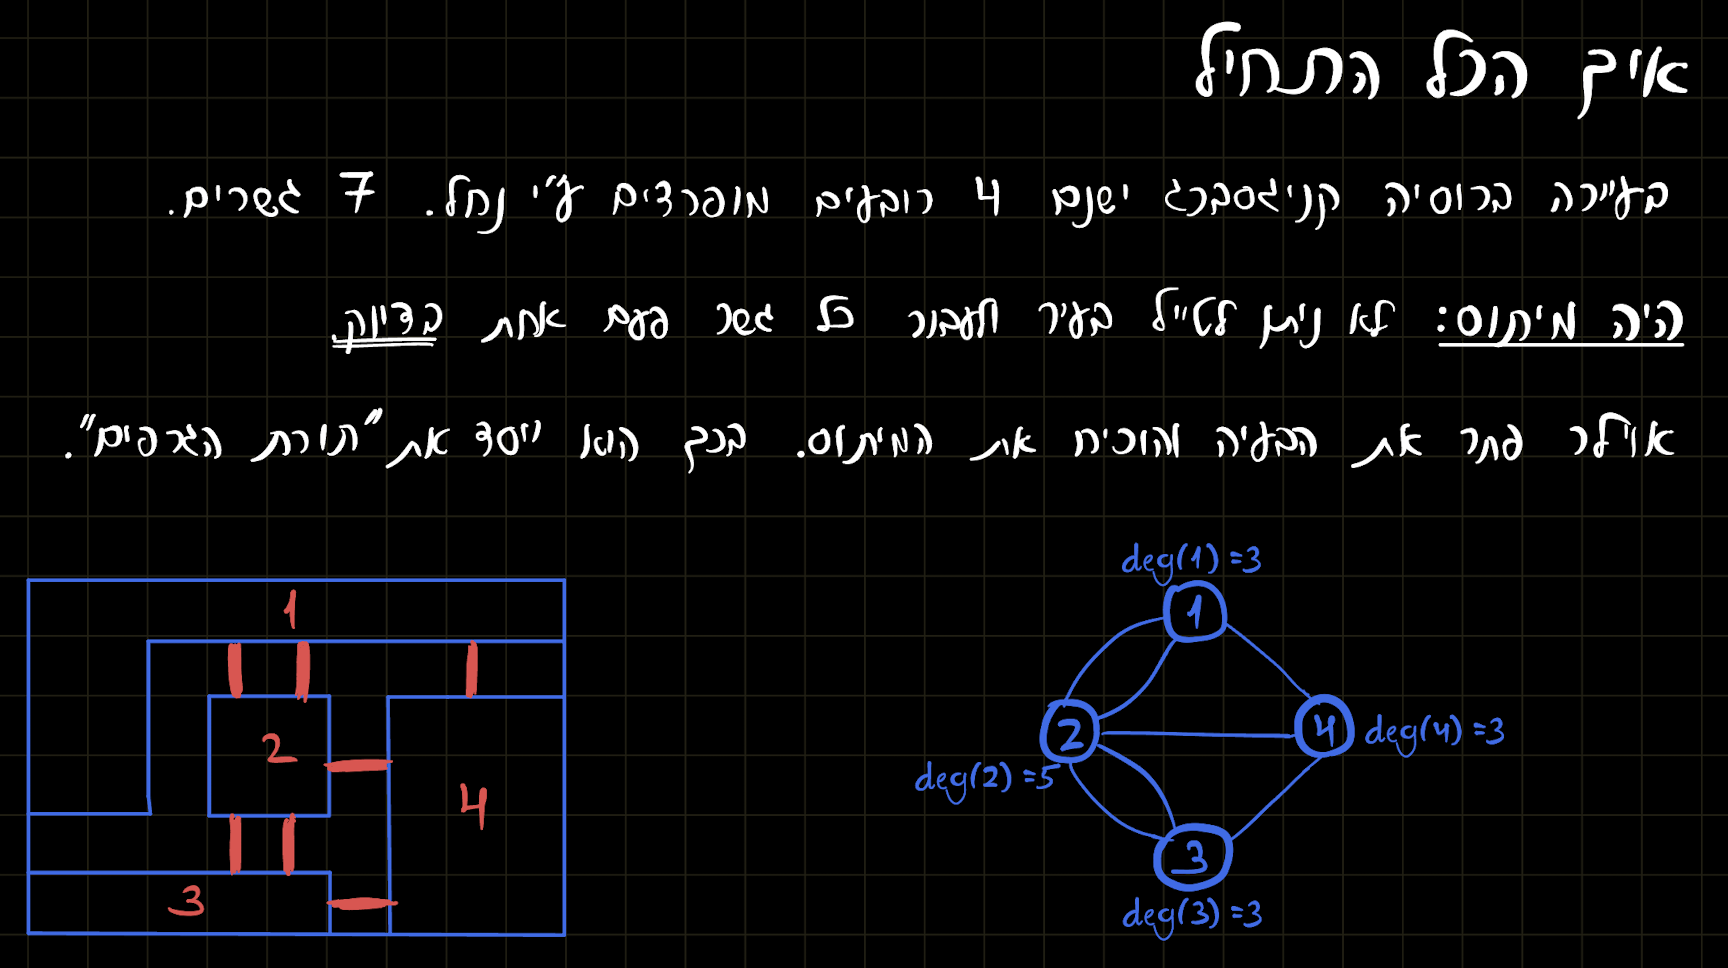 איך הכל התחיל
בעיירה ברוסיה קניגסברג ישנם 4 רובעים מופרדים ע״י נחל. 7 גשרים.
היה מיתוס: לא ניתן לטייל בעיר ולעבור כל גשר פעם אחת בדיוק.
אוילר פתר את הבעיה והוכיח את המיתוס. בכך הוא ייסד את "תורת הגרפים".
deg(1)=3
1
1
2
4
deg(4)=3
2
deg(2)=5
4
3
3
deg(3)=3